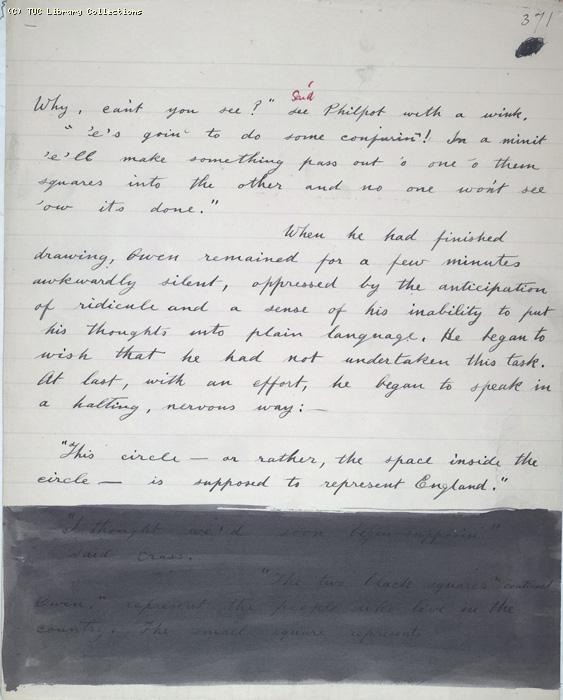 (C) TUC Library Collections
371
Why, can't you see?" see Said Philpot with a wink.
" 'e's goin' to do some conjurin'! In a minit
'e'll make something pass out 'o one 'o them
squares into the other and no one won't see
'ow it's done."
When he had finished
drawing, Owen remained for a few minutes
awkwardly silent, oppressed by the anticipation
of ridicule and a sense of his inability to put
his thoughts into plain language. He began to
wish that he had not undertaken this task.
At last, with an effort, he began to speak in
a halting, nervous way:—
"This circle — or rather, the space inside the
circle — is supposed to represent England."
"I thought we'd soon begin supposin'"
said Crass.
"The two black squares" continued
Owen," represent the people who live in the
country. The small square represents